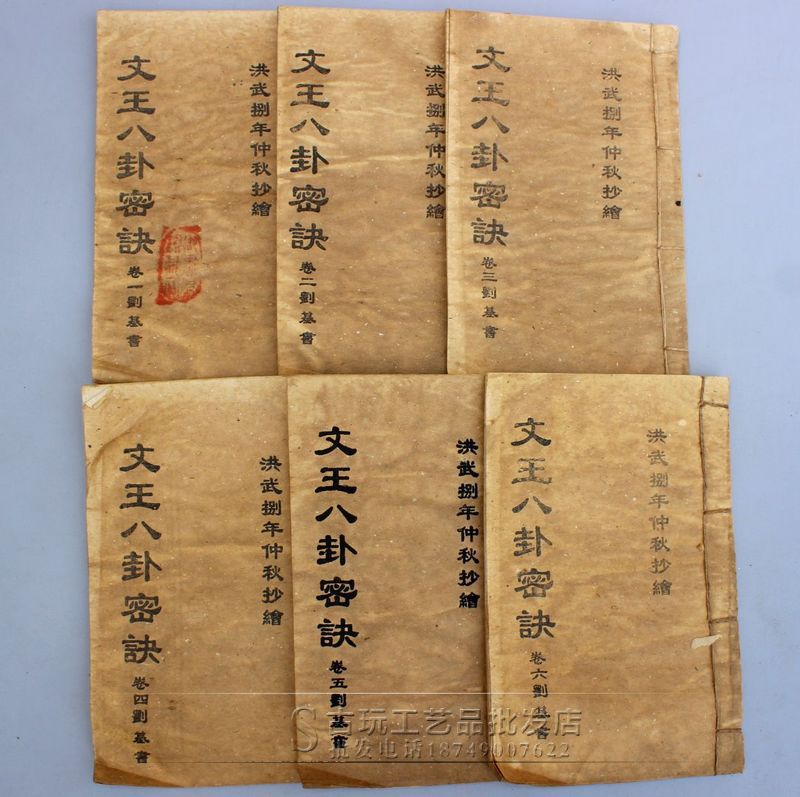 洪武捌年仲秋抄繪
文王八卦密訣 卷一劉基書
洪武捌年仲秋抄繪
文王八卦密訣 卷二劉基書
洪武捌年仲秋抄繪
文王八卦密訣 卷三劉基書
洪武捌年仲秋抄繪
文王八卦密訣 卷四劉基書
洪武捌年仲秋抄繪
文王八卦密訣 卷五劉基書
洪武捌年仲秋抄繪
文王八卦密訣 卷六劉基書
S古玩工艺品批发店
批发电话18749007622